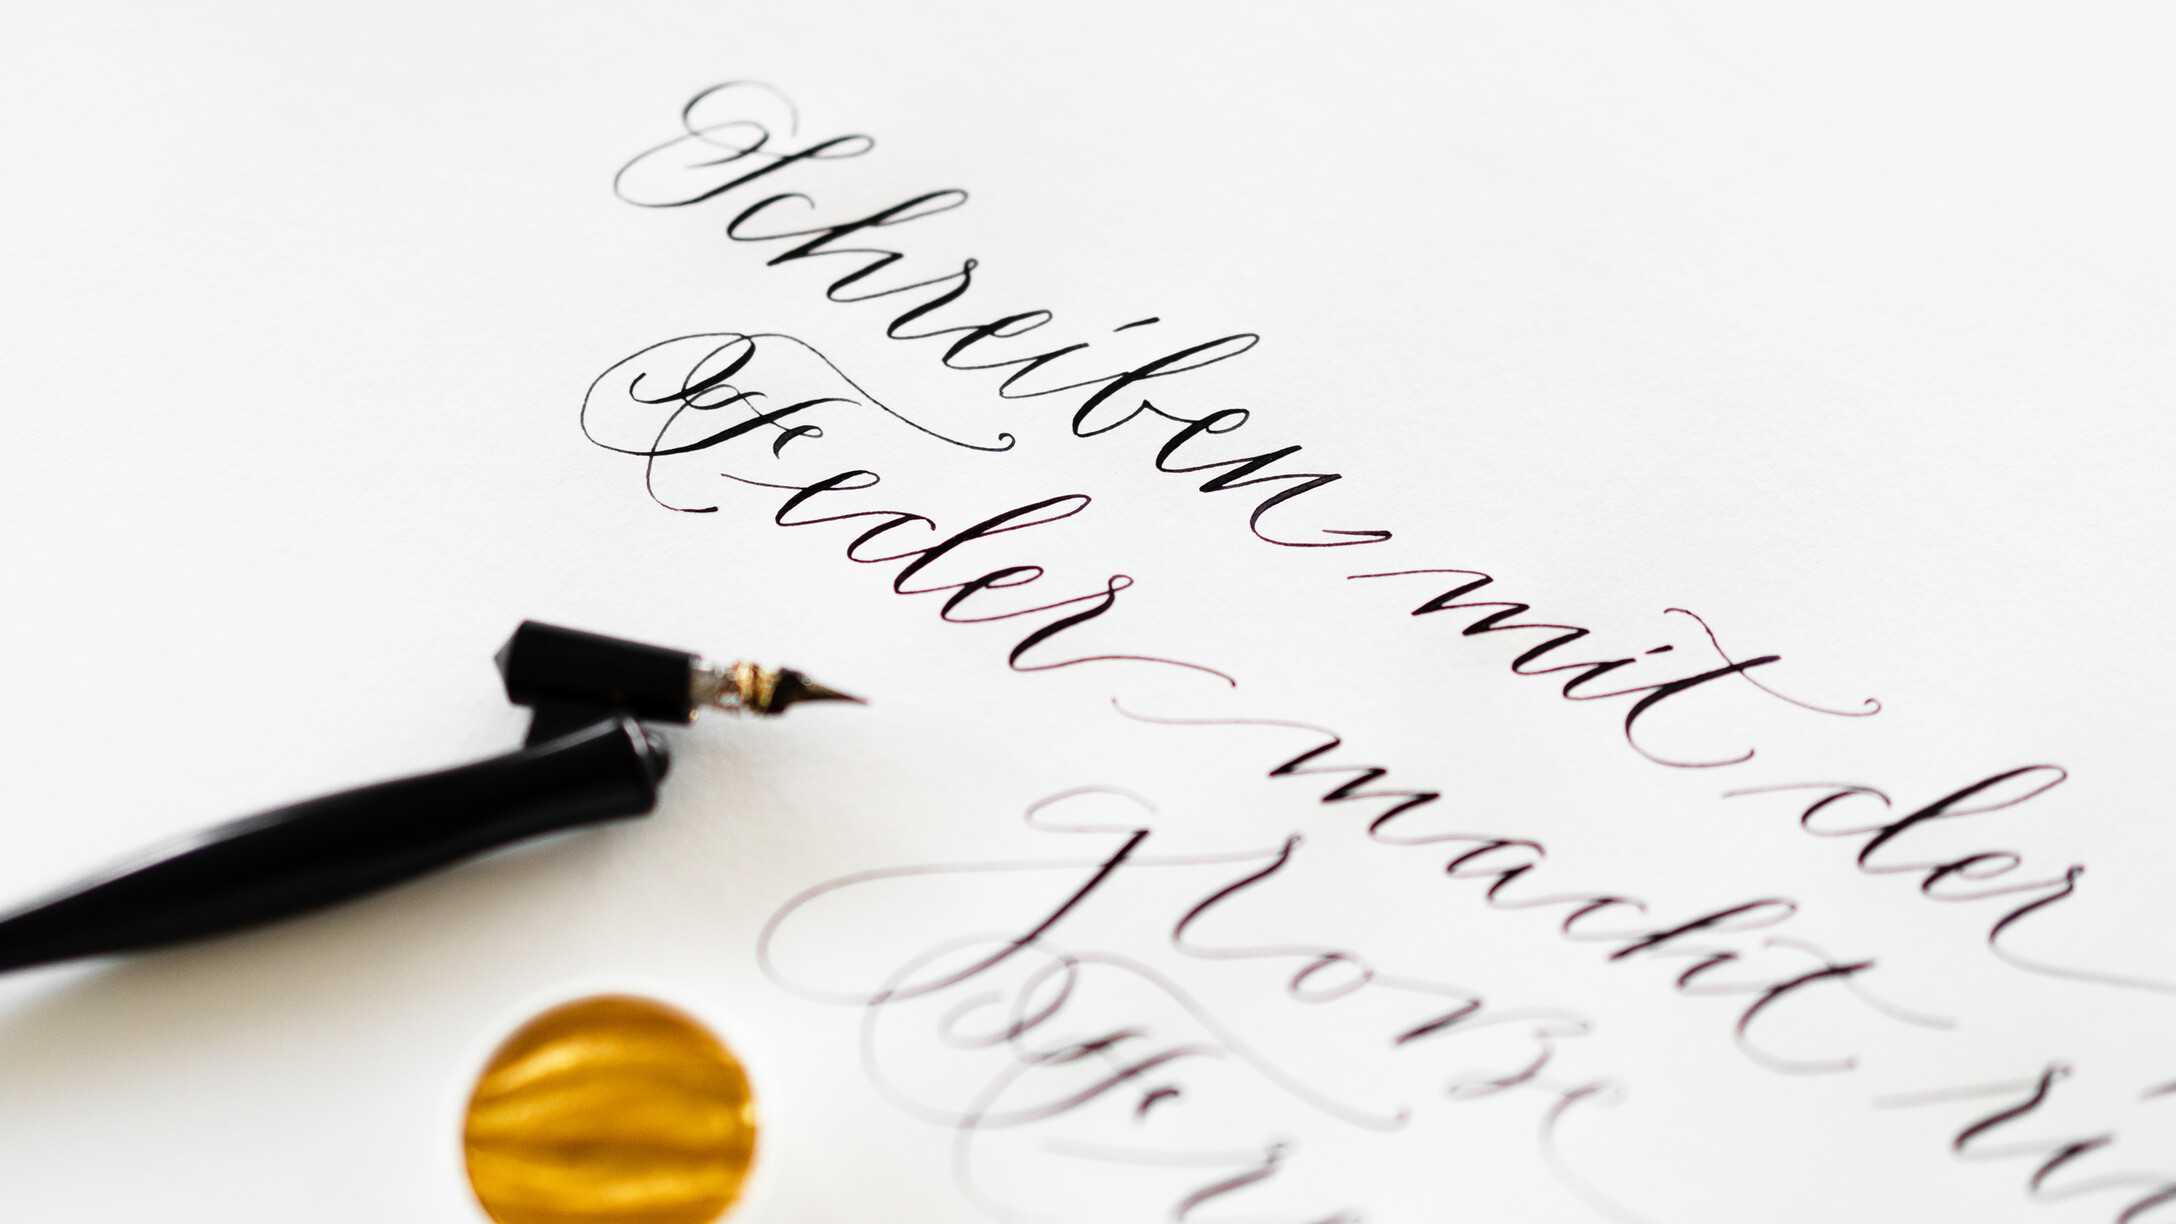 Schreiben mit der
Feder macht
große